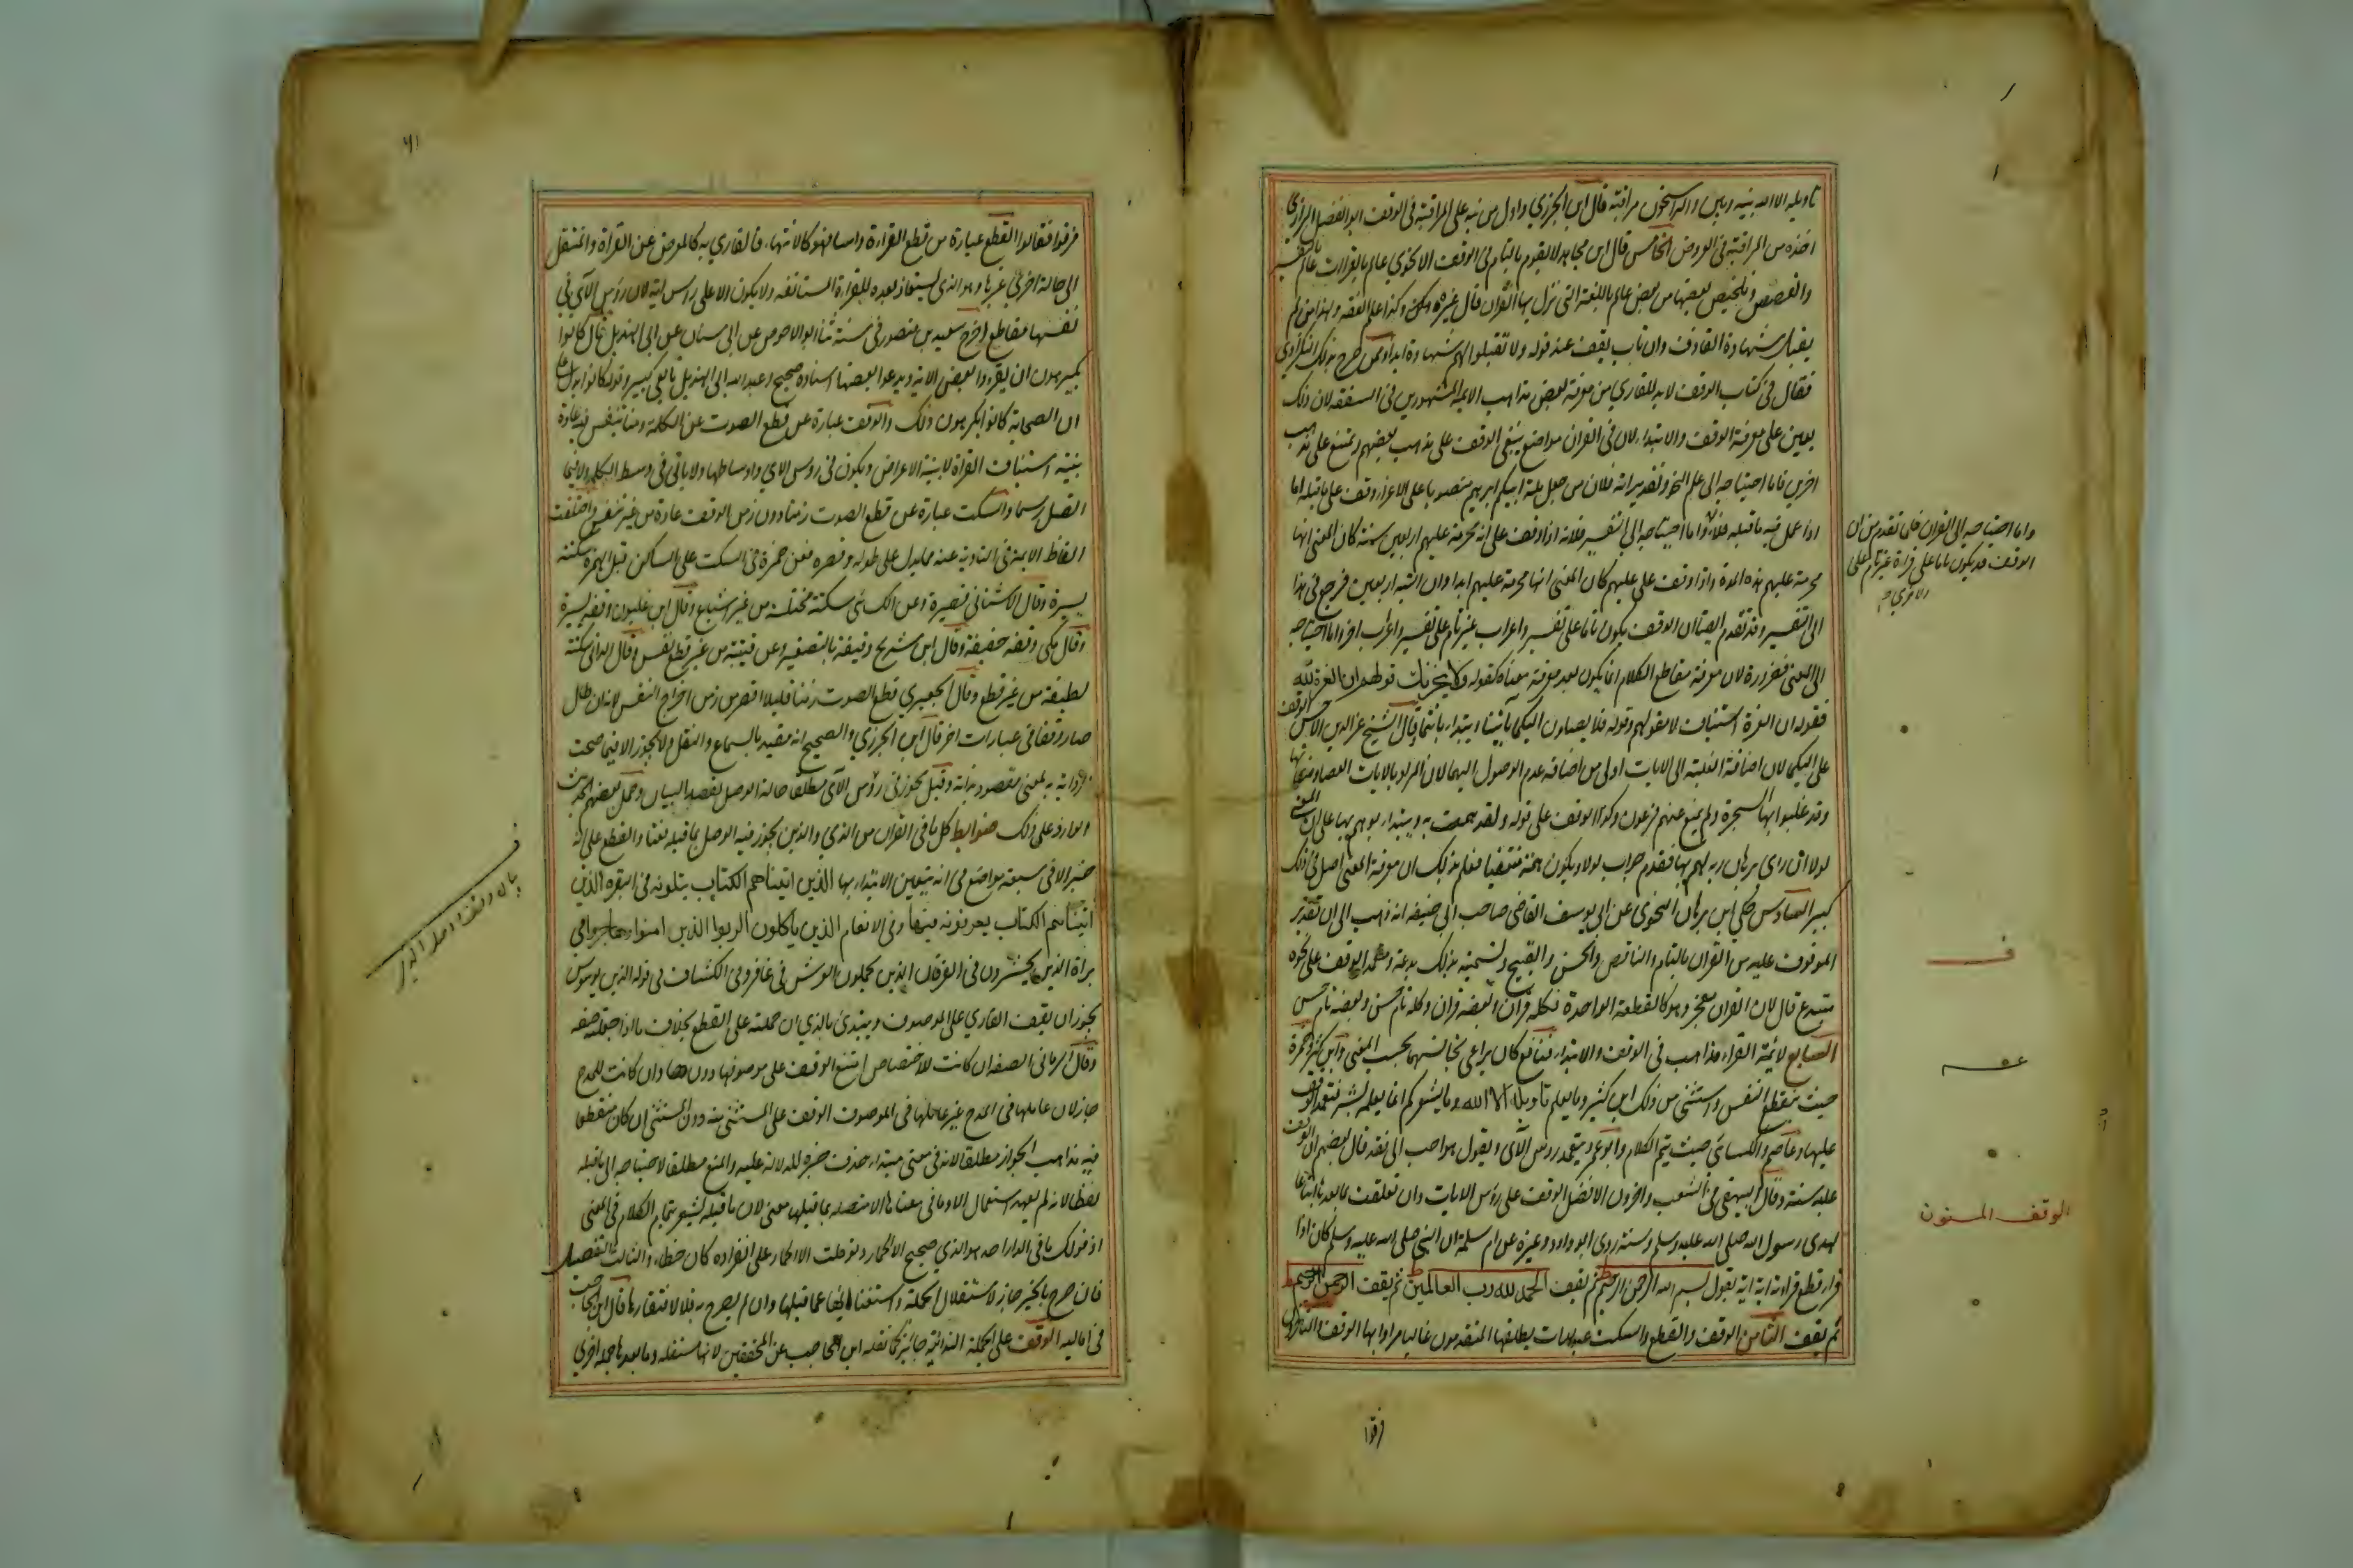 تاويله الا الله بينه وبين والراسخون مراقبة قال ابن الجزري واول من نبه على المراقبة في الوقف ابو الفضل الرازي
اخذه من المراقبة في العروض الخامس قال ابن مجاهد لا يقوم بالتمام في الوقف الا نحوي عالم بالقراات عالم بالتفسير
والقصص وتلخيص بعضها من بعض عالم باللغة التي نزل بها القران قال غيره وكذا علم الفقه ولهذا من لم
يقبل شهادة القاذف وان تاب يقف عند قوله ولا تقبلوا لهم شهادة ابدا وممن صرح بذلك النكزاوي
فقال في كتاب الوقف لابد للقاري من معرفة بعض مذاهب الايمة المشهورين في الفقه لان ذلك
يعين على معرفة الوقف والابتداء لان في القران مواضع ينبغي الوقف على مذهب بعضهم ويمتنع على مذهب
اخرين فاما احتياجه الى علم النحو وتقديراته فلان من جعل ملة ابيكم ابرهيم منصوبا على الاغراء وقف على ما قبله اما
اذا عمل فيه ما قبله فلا واما احتياجه الى التفسير فلانه اذا وقف على انه محرمة عليهم اربعين سنة كان المعنى انها
محرمة عليهم هذه المدة واذا وقف على عليهم كان المعنى انها محرمة عليهم ابدا وان التيه اربعين فرجع في هذا
الى التفسير وقد تقدم ايضا ان الوقف يكون تاما على تفسير واعراب غير تام على تفسير واعراب اخر واما احتياجه
الى المعنى فضرورة لان معرفة مقاطع الكلام انما يكون بعد معرفة معناه كقوله ولا يحزنك قولهم ان العزة لله
فقوله ان العزة استيناف لا مقولهم وقوله فلا يصلون اليكما باياتنا ويبتداء بانتما وقال الشيخ عز الدين الاحسن الوقف
على اليكما لان اضافة الغلبة الى الايات اولى من اضافة عدم الوصول اليها لان المراد بالايات العصا وصفاتها
وقد غلبوا بها السحرة ولم يمنع عنهم فرعون وكذا الوقف على قوله ولقد همت به ويبتداء بوهم بها على ان المعنى
لولا ان راى برهان ربه لهم بها فقدم جواب لولا ويكون همه منتفيا فعلم بذلك ان معرفة المعنى اصل في ذلك
كبير السادس حكى ابن برهان النحوي عن ابي يوسف القاضي صاحب ابي حنيفة انه ذهب الى ان تقدير
الموقوف عليه من القران بالتمام والناقص والحسن والقبيح وتسميته بذلك بدعة ومتعمد الوقف على نحوه
مبتدع قال لان القران معجز وهو كالقطعة الواحدة فكله قران وبعضه قران وكله تام حسن وبعضه تام حسن
السابع لائمة القراء مذاهب في الوقف والابتداء فنافع كان يراعي تجانسهما بحسب المعنى وابن كثير وحمزة
حيث ينقطع النفس واستثنى من ذلك ابن كثير وما يعلم تاويله الا الله وما يشعركم انما يعلمه بشر فتعمد الوقف
عليها وعاصم والكسائي حيث يتم الكلام وابو عمرو يتعمد روس الآي ويقول هو احب الي فقد قال بعضهم ان الوقف
عليه سنة وقال البيهقي في الشعب واخرون الافضل الوقف على روس الايات وان تعلقت بما بعدها اتباعا
لهدى رسول الله صلى الله عليه وسلم وسنته روى ابو داود وغيره عن ام سلمة ان النبي صلى الله عليه وسلم كان اذا
قراء قطع قراءته اية اية يقول بسم الله الرحمن الرحيم ثم يقف الحمد لله رب العالمين ثم يقف الرحمن الرحيم
ثم يقف الثامن الوقف والقطع والسكت عبارات يطلقها المتقدمون غالبا مرادا بها الوقف والمتاخرون
واما احتياجه الى القران فلما تقدم من ان
الوقف قد يكون تاما على قراءة غير تام على
الاخرى
ف
الوقف المسنون
فرقوا
٤١
فرقوا فقالوا القطع عبارة من قطع القراءة راسا فهو كالانتهاء فالقاري به كالمعرض عن القراة والمنتقل
الى حالة اخرى غيرها وهو الذي يستعاذ بعده للقراءة المستانفه ولا يكون الا على راس اية لان روس الآي في
نفسها مقاطع اخرج سعيد بن منصور في سننه ثنا ابو الاحوص عن ابي سنان عن ابي الهذيل قال كانوا
يكرهون ان يقرءوا بعض الاية ويدعوا بعضها اسناده صحيح وعبد الله ابن ابي الهذيل تابعي كبير وقوله كانوا يدل على
ان الصحابة كانوا يكرهون ذلك والوقف عبارة عن قطع الصوت عن الكلمة زمنا يتنفس فيه عادة
بنية استيناف القراة لا بنية الاعراض ويكون في روس الاي واوساطها ولا ياتي في وسط الكلمة ولا فيما
اتصل رسما والسكت عبارة عن قطع الصوت زمنا دون زمن الوقف عادة من غير تنفس واختلفت
الفاظ الايمة في التادية عنه مما يدل على طوله وقصره فعن حمزة في السكت على الساكن قبل الهمزة سكتة
يسيرة وقال الاشناني قصيرة وعن الكسائي سكتة مختلسة من غير اشباع وقال ابن غلبون وقفة يسيرة
وقال مكي وقفة خفيفة وقال ابن شريح وقيفة بالتصغير وعن قتيبة من غير قطع نفس وقال الداني سكتة
لطيفة من غير قطع وقال الجعبري قطع الصوت زمنا قليلا اقصر من زمن اخراج النفس لانه ان طال
صار وقفا في عبارات اخر قال ابن الجزري والصحيح انه مقيد بالسماع والنقل ولا يجوز الا فيما صحت
الرواية به لمعنى مقصود بذاته وقيل يجوز في روس الآي مطلقا حالة الوصل لقصد البيان وحمل بعضهم الحديث
الوارد على ذلك ضوابط كل ما في القران من الذي والذين يجوز فيه الوصل بما قبله نعتا والقطع على انه
خبر الا في سبعة مواضع فانه يتعين الابتداء بها الذين اتيناهم الكتاب يتلونه في البقره الذين
اتيناهم الكتاب يعرفونه فيها وفي الانعام الذين ياكلون الربوا الذين امنوا وهاجروا في
براة الذين يحشرون في الفرقان الذين يحملون العرش في غافر وفي الكشاف في قوله الذي يوسوس
يجوز ان يقف القاري على الموصوف ويبتدئ بالذي ان حملته على القطع بخلاف ما اذا جعلته صفه
وقال الرماني الصفه ان كانت للاختصاص امتنع الوقف على موصوفها دونها وان كانت للمدح
جاز لان عاملها في المدح غير عاملها في الموصوف الوقف على المستثنى منه دون المستثنى ان كان منقطعا
فيه مذاهب الجواز مطلقا لانه في معنى مبتداء حذف خبره للدلالة عليه والمنع مطلقا لاحتياجه الى ما قبله
لفظا لانه لم يعهد استعمال الا وما في معناها الا متصله بما قبلها ومعنى لان ما قبله يشعر بتمام الكلام في المعنى
اذ قولك ما في الدار احد هو الذي صحيح الا الحمار ولو قلت الا الحمار على انفراده كان خطاء والثالث التفصيل
فان صرح بالخبر جاز لاستقلال الجملة واستغنائها عما قبلها وان لم يصرح به فلا لافتقارها قال ابن الحاجب
في اماليه الوقف على الجملة الندائية جائز كما نقله ابن الحاجب عن المحققين لانها مستقله وما بعدها جملة اخرى